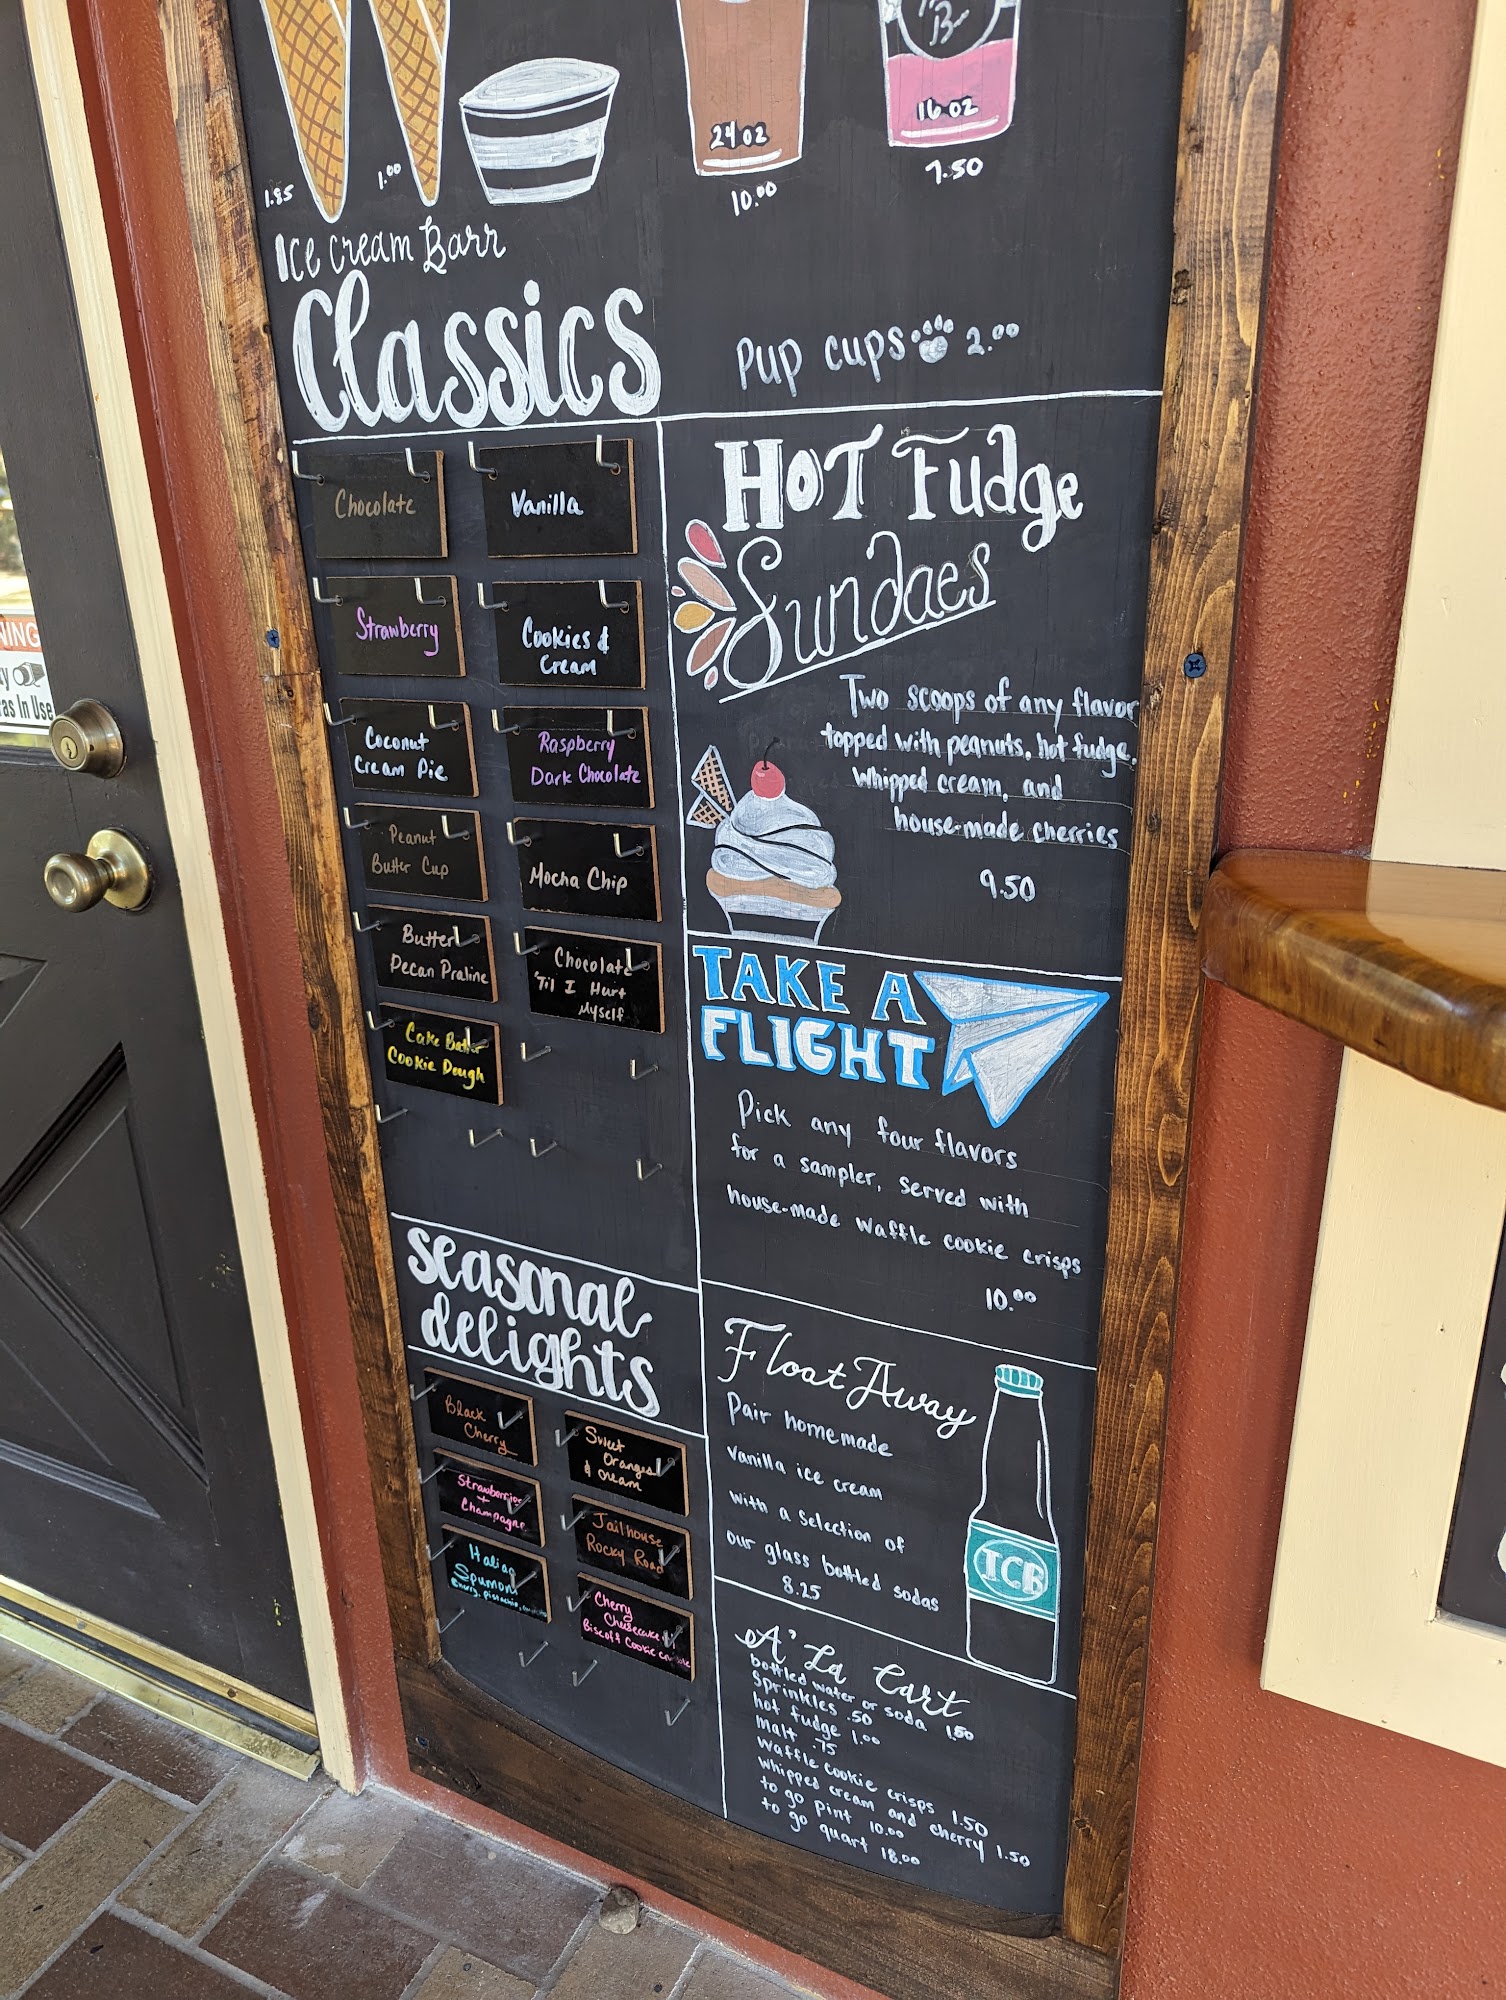 24 oz
16 oz
1.85
1.00
10.00
7.50
Ice Cream Barr
Classics
Pup cups 2.00
Chocolate
Vanilla
Strawberry
Cookies &
Cream
Coconut
Cream Pie
Raspberry
Dark Chocolate
Peanut
Butter Cup
Mocha Chip
Butter
Pecan Praline
Chocolate
'Til I Hurt
Myself
Cake Batter
Cookie Dough
Hot Fudge
Sundaes
Two scoops of any flavor
topped with peanuts, hot fudge,
whipped cream, and
house-made cherries
9.50
TAKE A
FLIGHT
Pick any four flavors
for a sampler, served with
house-made waffle cookie crisps
10.00
seasonal
delights
Black
Cherry
Sweet
Oranges
& Cream
Strawberries
+
Champagne
Jailhouse
Rocky Road
Italian
Spumoni
Cherry, pistachio,
Cherry
Cheesecake
Biscoff Cookie
Float Away
Pair homemade
vanilla ice cream
with a selection of
our glass bottled sodas
8.25
ICB
A' La Cart
bottled water or soda 1.50
Sprinkles .50
hot fudge 1.00
Malt .75
Waffle cookie crisps 1.50
whipped cream and cherry 1.50
to go pint 10.00
to go quart 18.00
NING
ras In Use